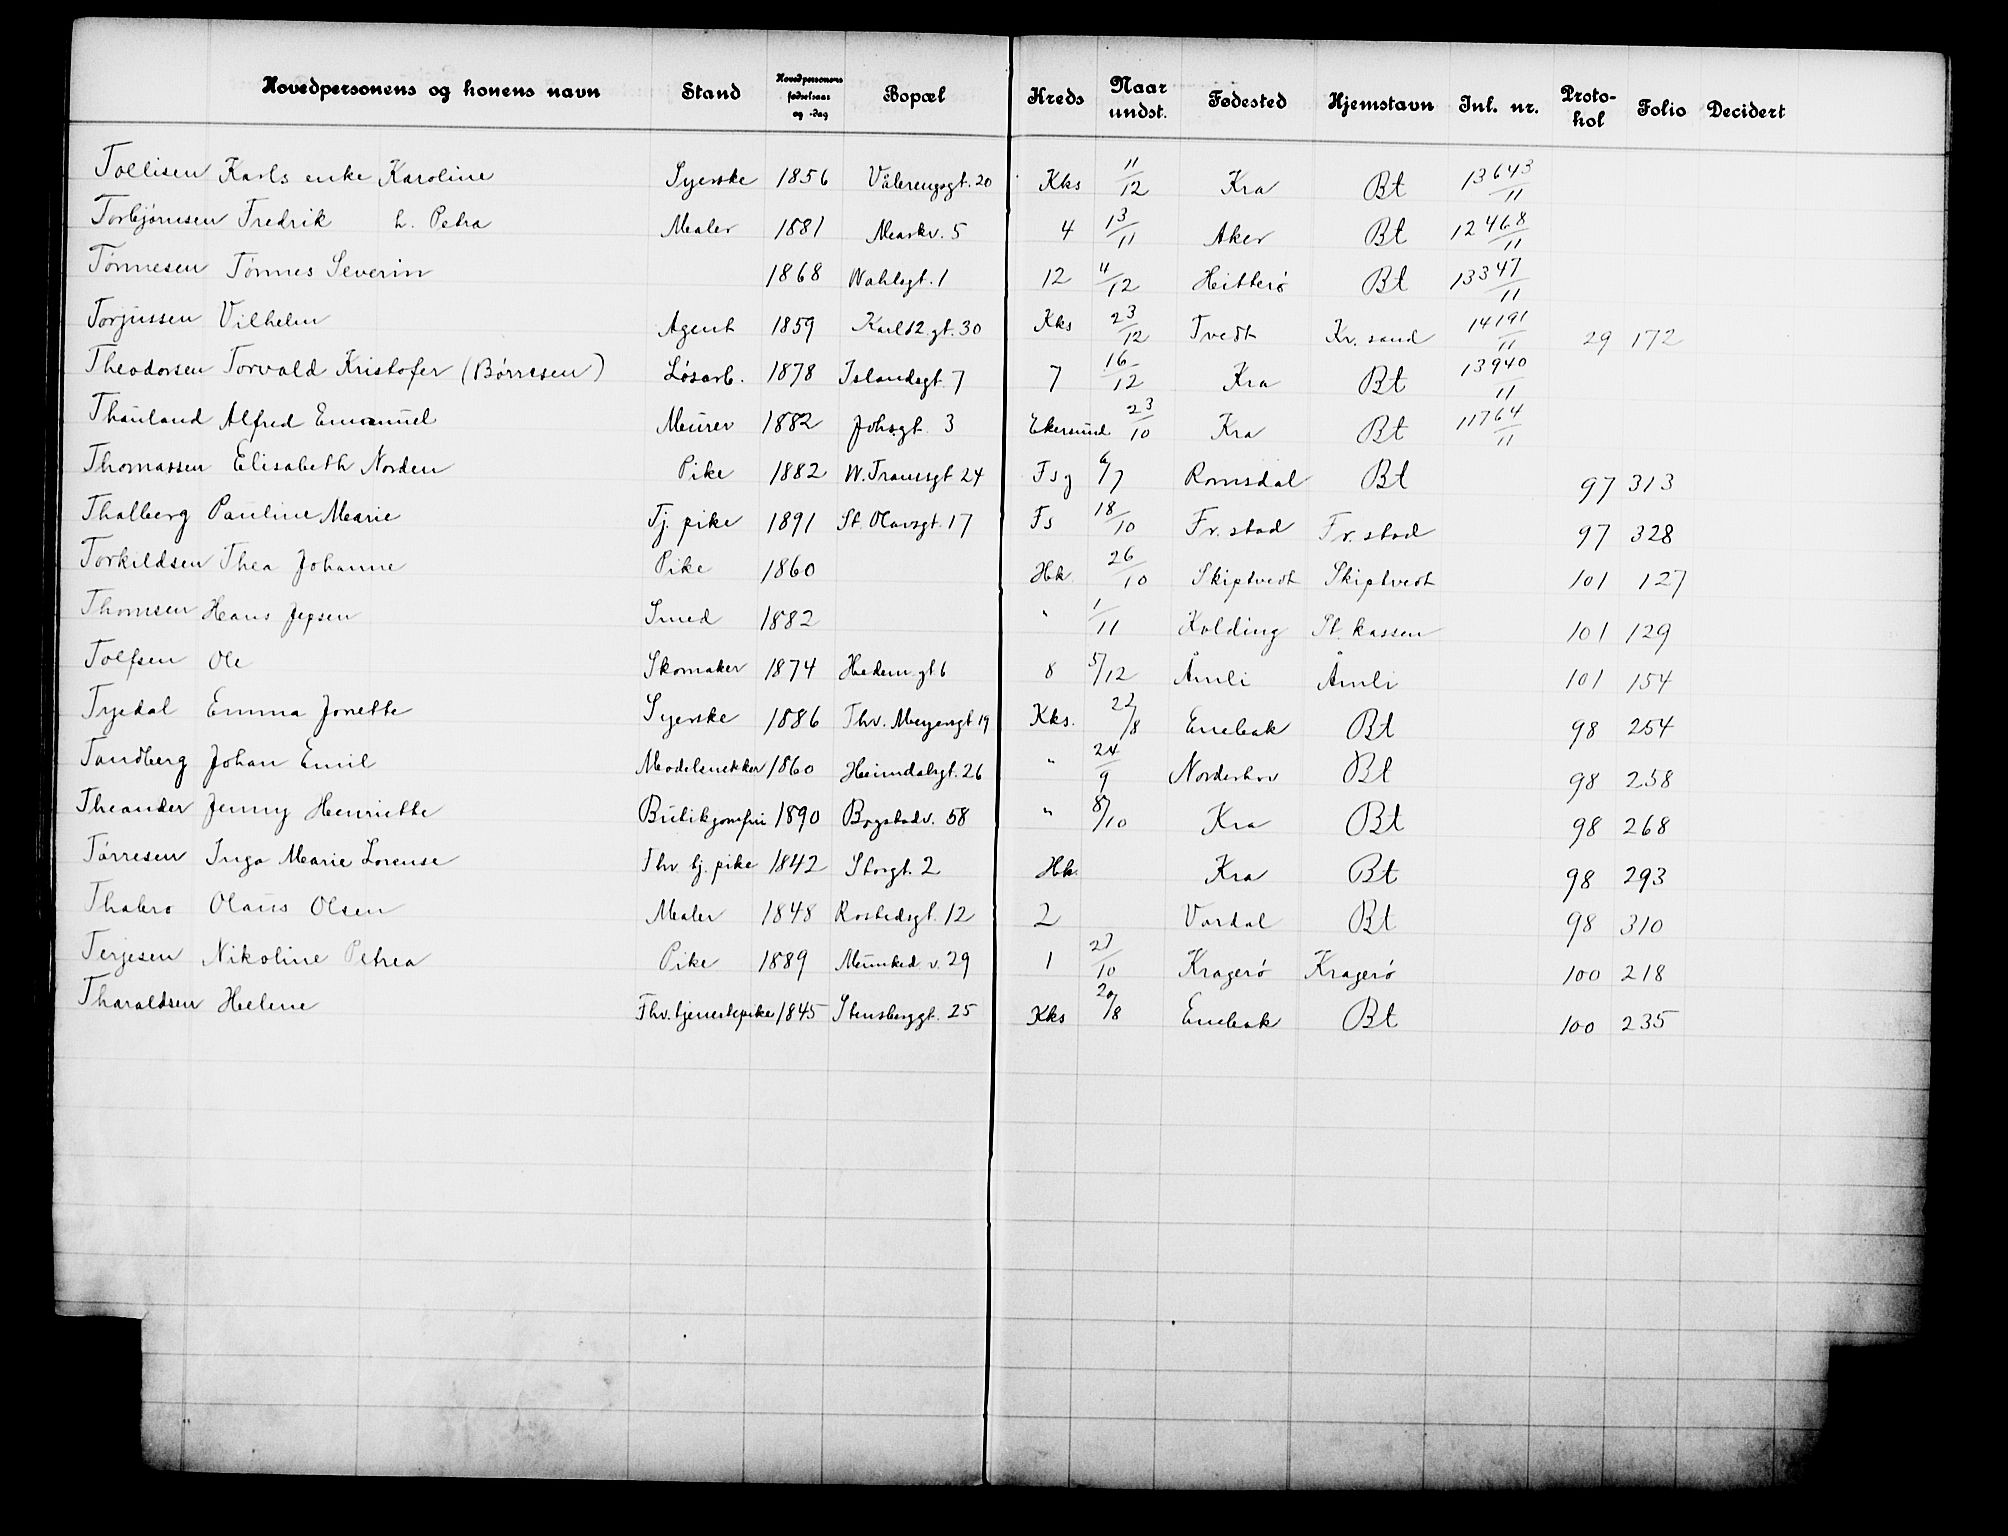 Hovedpersonens og konens navn Stand Hovedpersonens fødselsaar og -dag Bopæl Kreds Naar undst. Fødested Hjemstavn Inl. nr. Proto-kol Folio Decidert
Tollisen Karls enke Karoline Syerske 1856 Vålerengsgt. 20 Kks 11/12 Kra Bt 13643/11
Torbjørnsen Fredrik h. Petra Maler 1881 Markv. 5 4 13/11 Aker Bt 12468/11
Tønnesen Tønnes Severin 1868 Wahlsgt. 1 12 4/12 Hitterø Bt 13347/11
Torjussen Vilhelm Agent 1859 Karl 12 gt. 30 Kks 23/12 Tvedt Kr. sand 14191/11 29 172
Theodorsen Torvald Kristofer (Børresen) Løsarb. 1878 Islandsgt. 7 7 16/12 Kra Bt 13940/11
Thauland Alfred Emanuel Murer 1882 Johsgt. 3 Ekersund 23/10 Kra Bt 11764/11
Thomassen Elisabeth Norden Pike 1882 W. Tranesgt 24 Fsg 6/7 Romsdal Bt 97 313
Thalberg Pauline Marie Tj. pike 1891 St. Olavsgt. 17 Fs 18/10 Fr. stad Fr. stad 97 328
Torkildsen Thea Johanne Pike 1860 Hk 26/10 Skiptvedt Skiptvedt 101 127
Thomsen Hans Jepsen Smed 1882 " 1/11 Kolding St. kassen 101 129
Tolfsen Ole Skomaker 1874 Hedem. gt 6 8 5/12 Åmli Åmli 101 154
Tyedal Emma Jonette Syerske 1886 Thv. Meyersgt 19 Kks. 23/8 Enebak Bt 98 254
Tandberg Johan Emil Modelsnekker 1860 Heimdalsgt. 26 " 24/9 Norderhov Bt 98 258
Theander Jenny Henriette Butikjomfru 1890 Bogstadv. 58 " 8/10 Kra Bt 98 268
Tørresen Inga Marie Lorense Fhv tj. pike 1842 Storgt. 2 Hk. Kra Bt 98 293
Thabro Olaus Olsen Maler 1848 Rostedsgt. 12 2 Vardal Bt 98 310
Terjesen Nikoline Petrea Pike 1889 Munked. v. 29 1 27/10 Kragerø Kragerø 100 218
Tharaldsen Helene Fhv. tjenestepike 1845 Stensberggt. 25 Kks 20/8 Enebak Bt 100 235